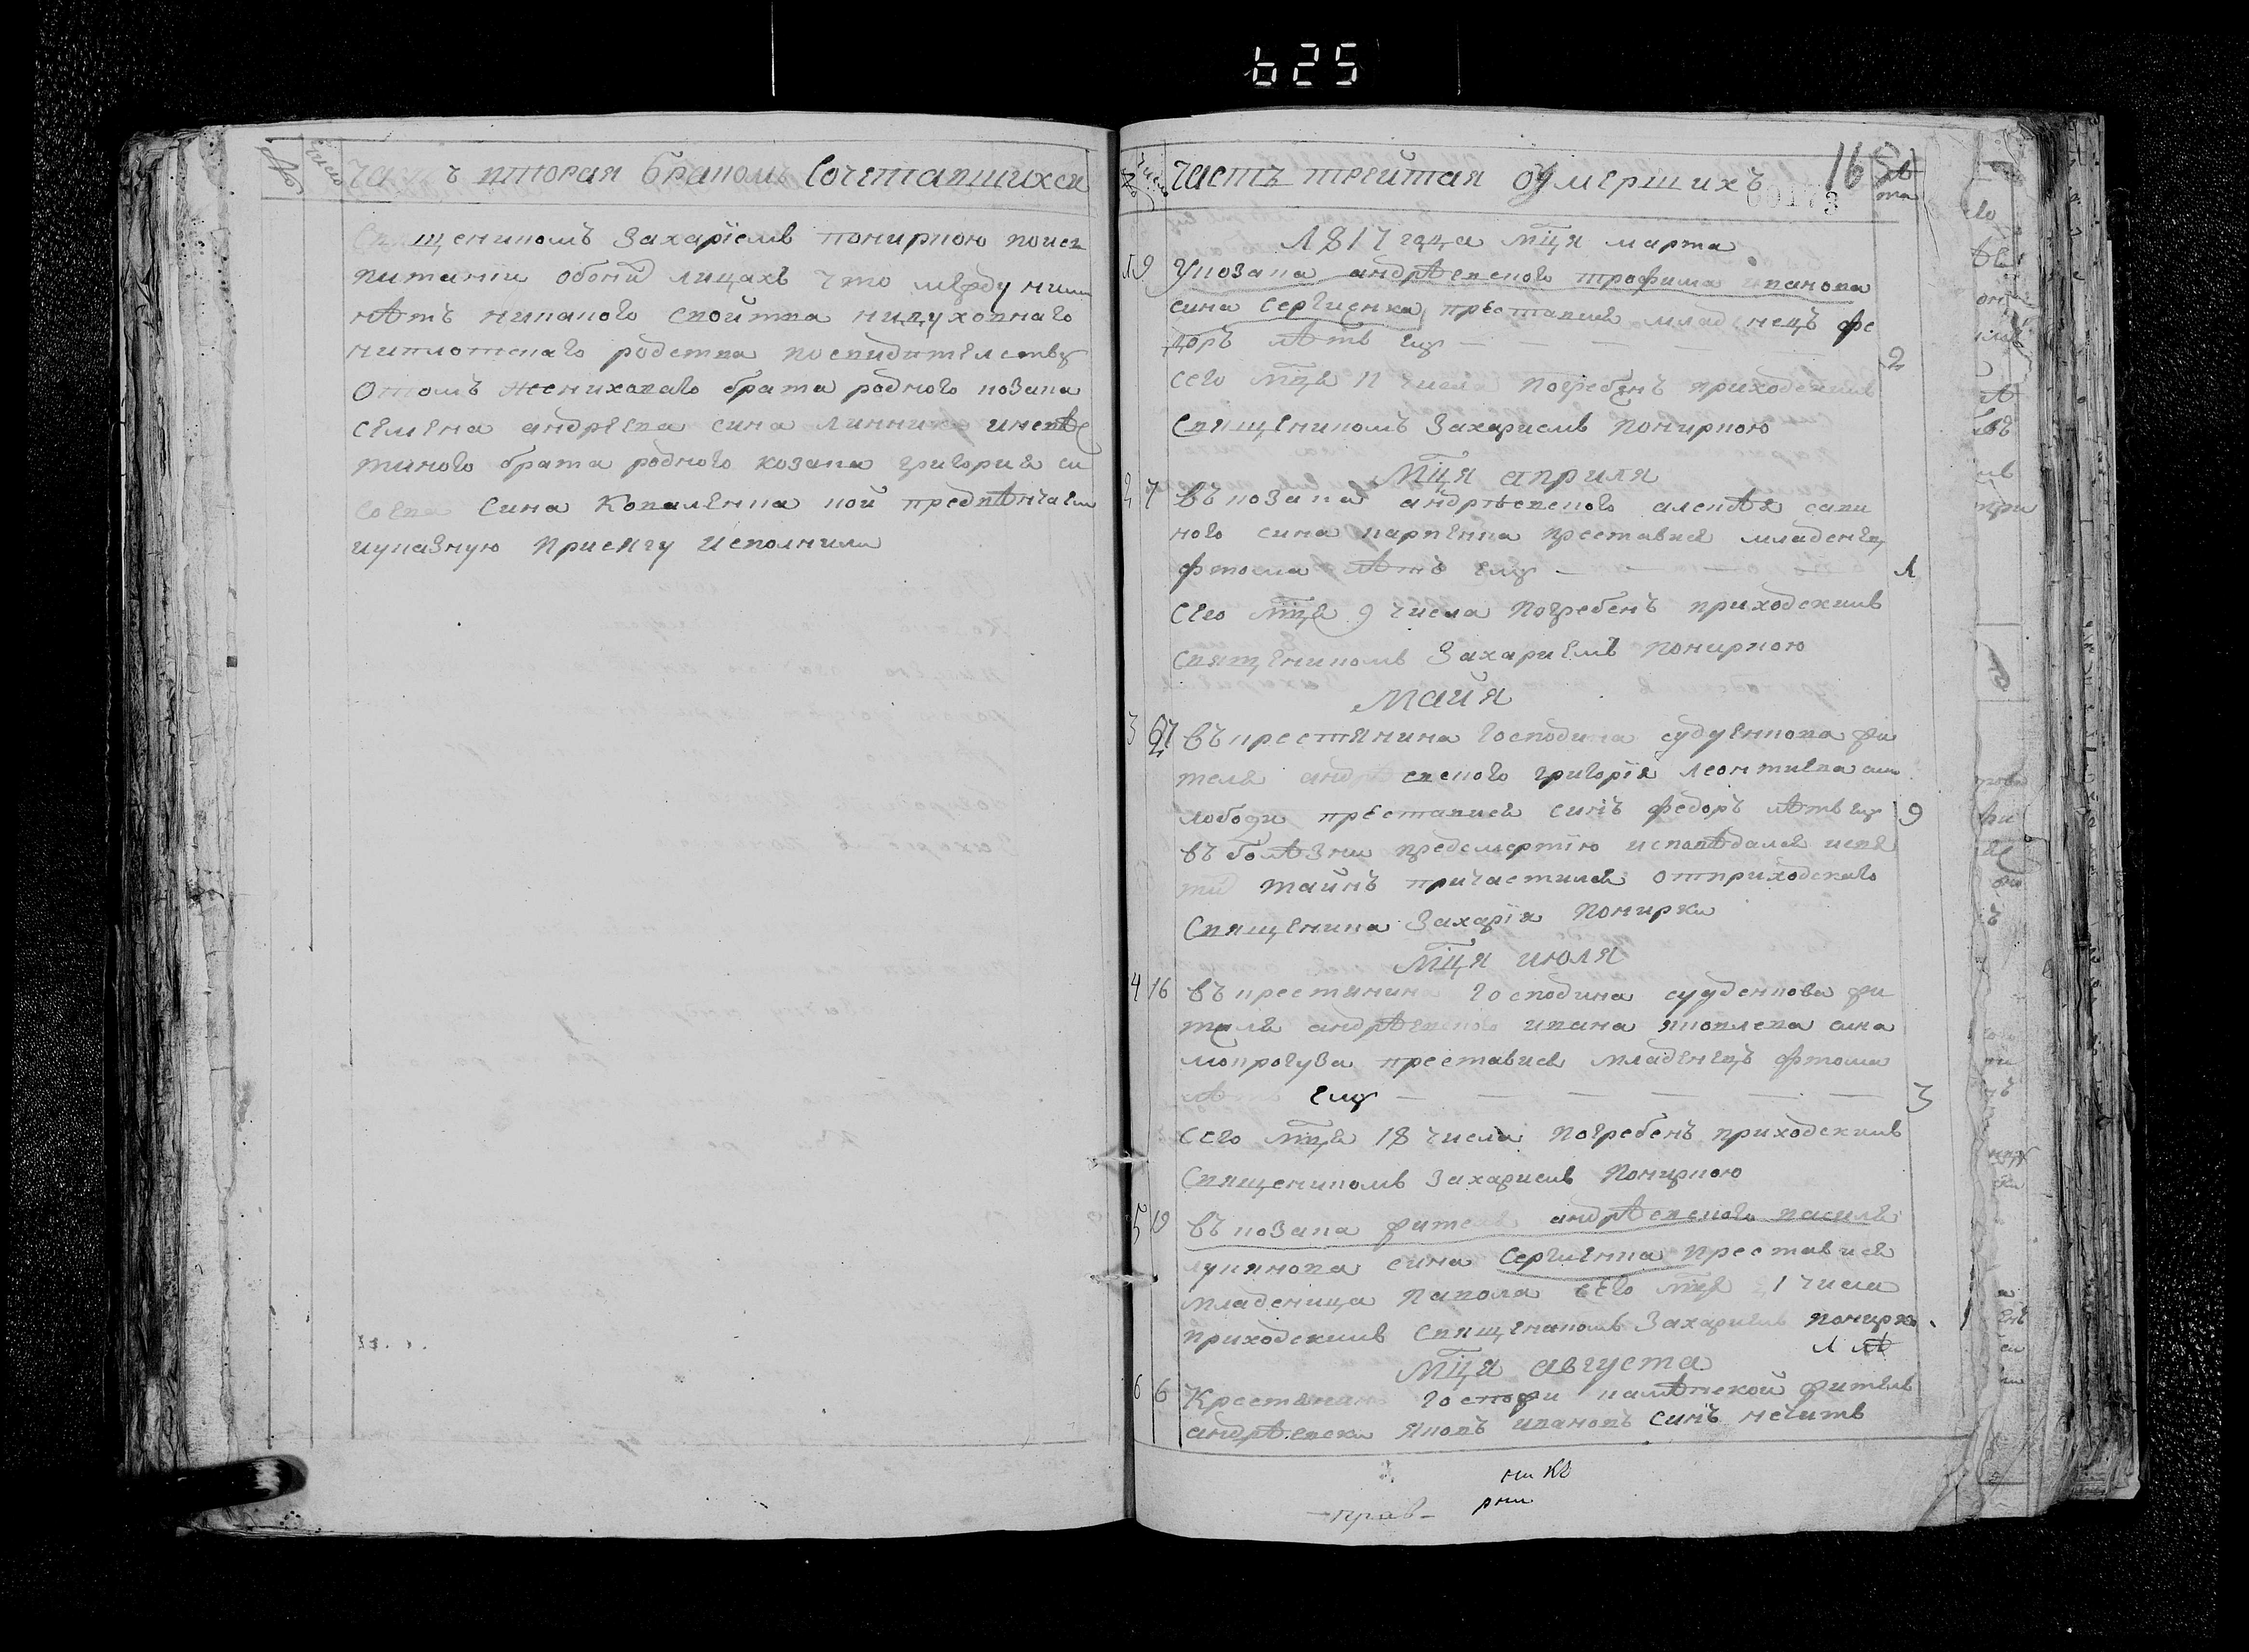 625
№ число часть вторая браком сочетавшихся
священником Захарїемъ Понирkою по
питанїи обоих лицахъ что между ними
нѣтъ никакого свойтва нидуховнаго
ниплотскаго родства посвидителству
отомъ жениховаго брата родного козака
семена андреева сина линника иневѣс
тиного брата родного козака григория си
соева сина Коваленка кой предвѣнчаем
иуказную присягу исполнили
№ число часть трейтая оумершихъ 16 лѣта
1817 года мця марта
1 9 У козака андрѣевского трофима иванова
сина сергиенка преставися младенецъ фе
доръ лѣтъ ему — 2
сего мця 11 числа погребенъ приходскимъ
священикомъ Захариемъ Понирkою
мця априля
2 7 въ козака андрѣевского алексѣя сави
ного сина карпенка преставися младенец
фтома лѣтъ ему — 1
сего мця 9 числа погребенъ приходскимъ
священикомъ Захариемъ Понирkою
майя
3 27 въ крестянина господина судденкова жи
теля андрѣевского григорїя леонтиева сина
лободи преставися синъ федоръ лѣтъ ему 9
въ болѣзни предсмертїю исповѣдался исвя
тих таинъ причастился отприходскаго
священика Захарїя Понирки
мця июля
4 16 въ крестянина господина судденкова жи
теля андрѣевского ивана яковлева сина
мокрогуза преставися младенецъ фтома
лѣтъ ему — 3
сего мця 18 числа погребенъ приходскимъ
священикомъ Захариемъ Понирkою
5 19 въ козака жителя андрѣевского василя
лукянова сина сергиенка преставися
младеница сего мця 21 числа
приходскимъ священикомъ Захариемъ Понирко.
1 лѣ
мця августа
6 6 Крестянин госпожи жителъ
андрѣевски яковъ ивановъ синъ
прав